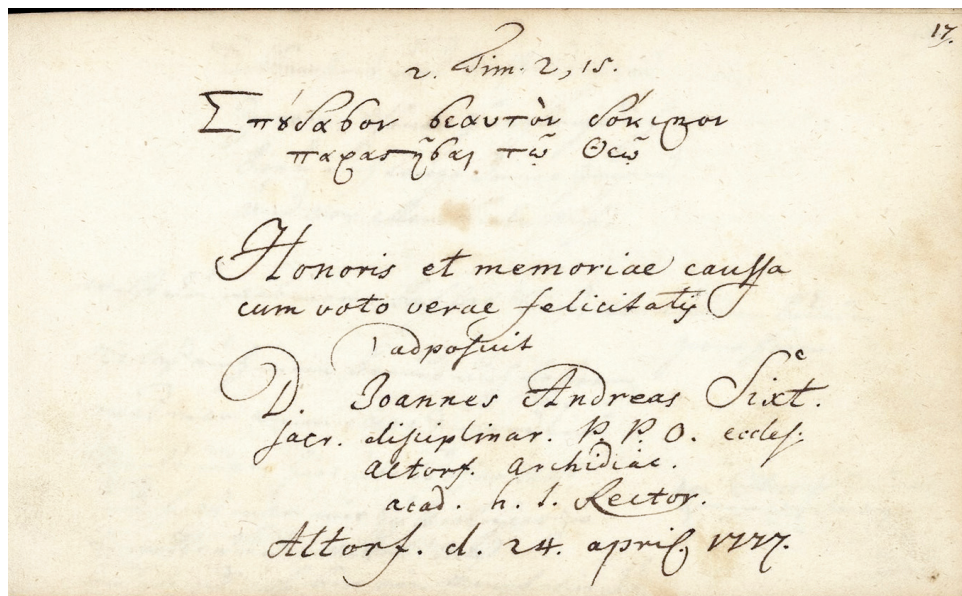 17.
2. Tim. 2, 15.
Σπȣ́δασον σεαυτὸν δόκιμον
παραστῆσαι τῷ Θεῷ
Honoris et memoriae caussa
cum voto verae felicitatis
adposuit
D. Joannes Andreas Sixt.
sacr. disciplinar. P. P. O. eccles.
Altorf. Archidiac.
acad. h. t. Rector.
Altorf. d. 24. april. 1777.